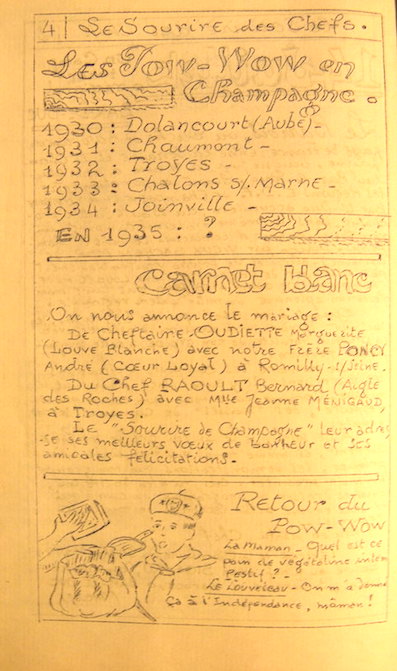 4 | Le Sourire des Chefs.
Les Pow-Wow en
Champagne.
1930 : Dolancourt (Aube) -
1931 : Chaumont -
1932 : Troyes -
1933 : Chalons s/. Marne -
1934 : Joinville -
EN 1935 : ?
Carnet blanc
On nous annonce le mariage :
De Cheftaire OUDIETTE Marguerite
(Louve Blanche) avec notre Frère PONCY
André (Cœur Loyal) à Romilly-s/Seine.
Du Chef RAOULT Bernard (Aigle
des Roches) avec Mlle Jeanne MÉNIGAUD,
à Troyes.
Le "Sourire de Champagne" leur adres
-se ses meilleurs vœux de bonheur et ses
amicales félicitations.
Retour du
Pow-Wow
La Maman - Quel est ce
pain de végétaline intem
pestif ? -
Le Louveteau - On m'a donné
ça à l'Indépendance, maman !